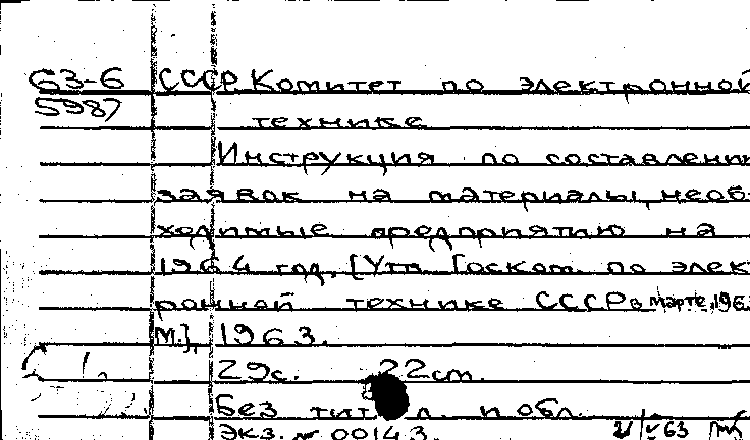 63-6 СССР Комитет по электронной
5987
технике
Инструкция по составлении
заявок на материалы, необ-
ходимые предприятию на
1964 год. [Утв. Госком. по элек
ронной технике СССР в марте, 196
М.], 1963.
29с. 22cm.
Без тит. л. и обл.
Экз. № 00143.
21/V-63